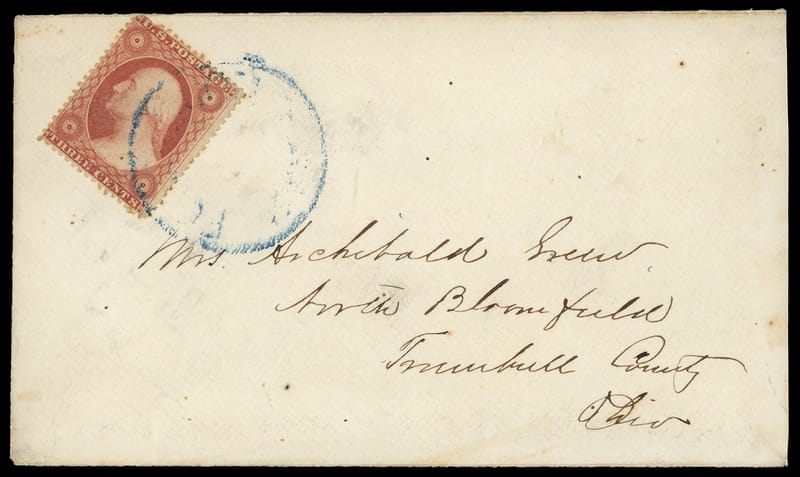 U.S. POSTAGE
THREE CENTS
Mrs Archibald Green
North Bloomfield
Trumbull County
Ohio